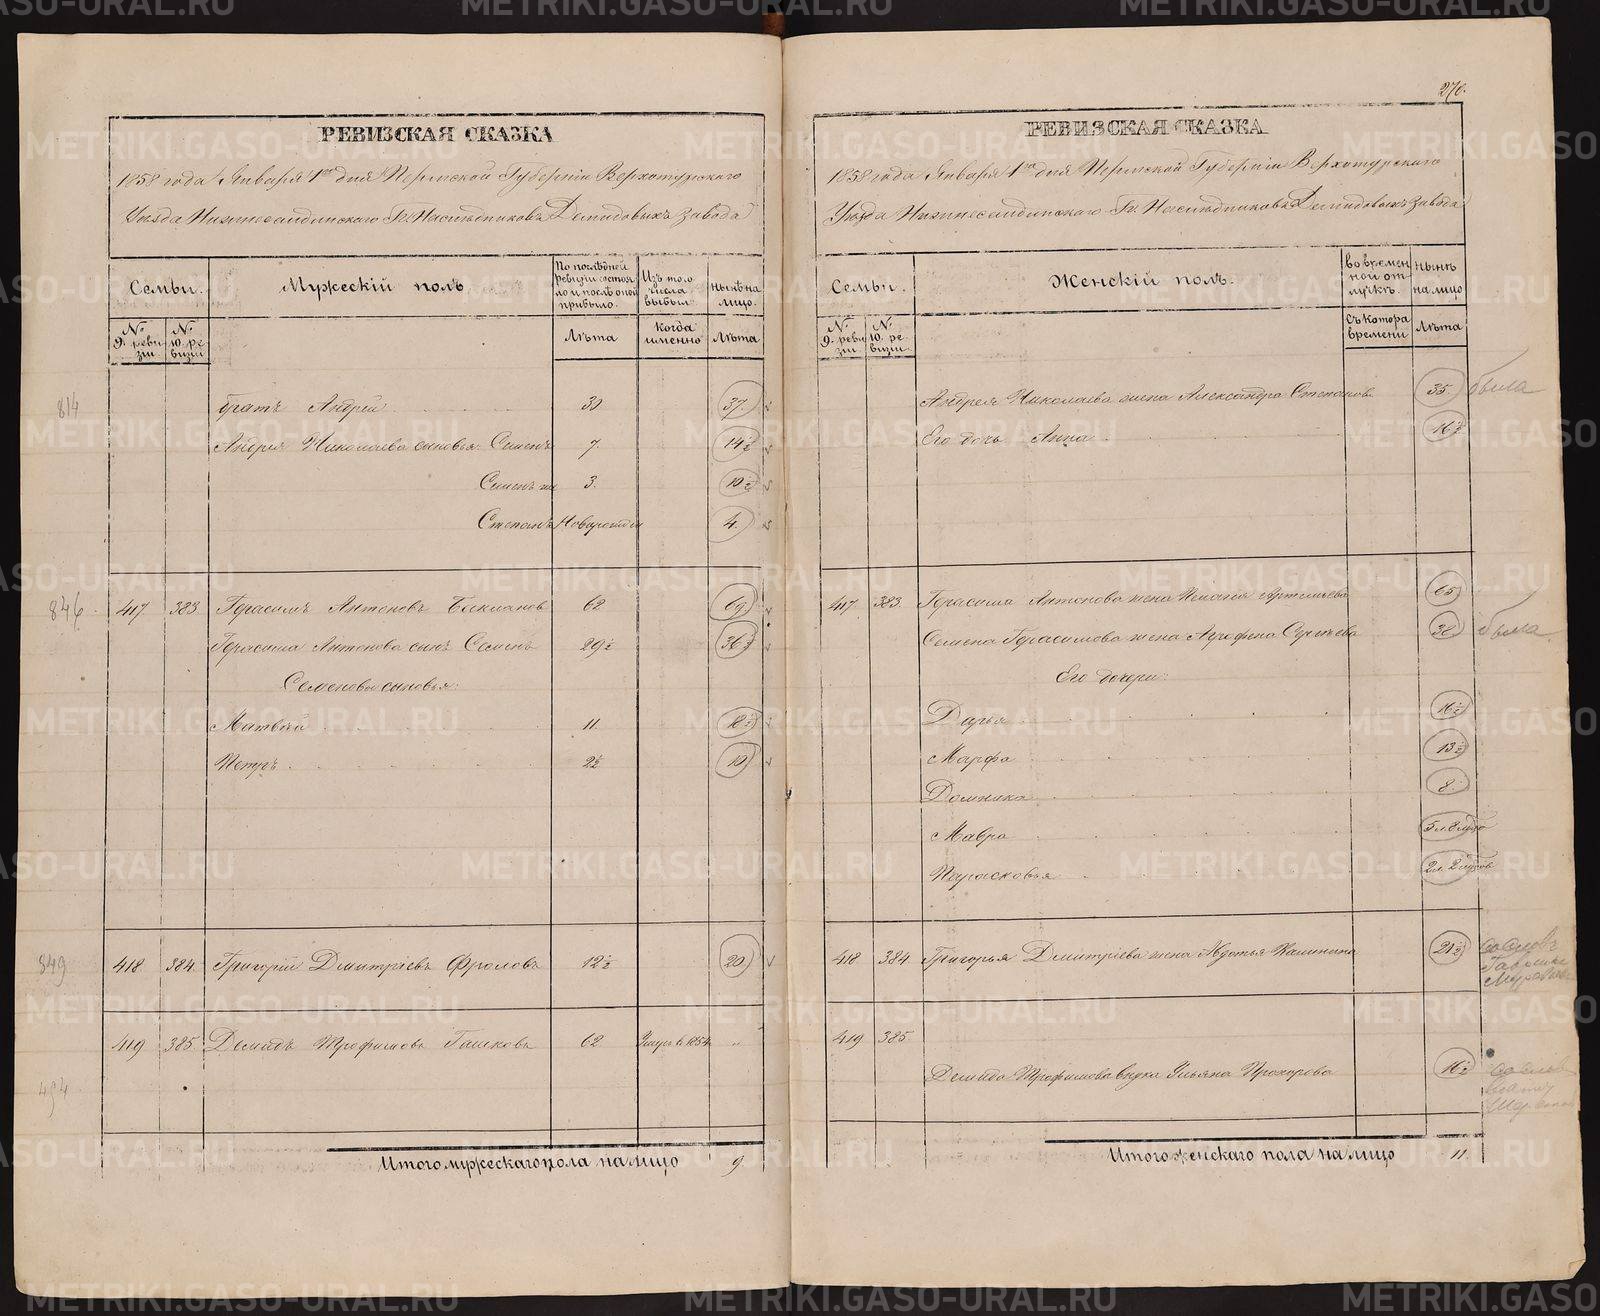 270.
РЕВИЗСКАЯ СКАЗКА
1858 года Января 1го дня Пермской Губерніи Верхотурскаго
Уѣзда Нижнесалдинскаго Гг. Наслѣдниковъ Демидовыхъ завода
Семьи.
Мужескій полъ.
По послѣдней ревизіи состояло и послѣ оной прибыло.
Изъ того числа выбыли
Нынѣ на лицо.
№ 9. ревизіи
№ 10. ревизіи
Лѣта
Когда именно
Лѣта
814
братъ Андрей 30 37.
Андрея Николаева сыновья: Семенъ 7. 14½
Семенъ же 3. 10½
Степанъ Новорожден 4.
846
417 383 Герасимъ Антоновъ 62 69
Герасима Антонова сынъ Семенъ 29½ 36½
Семеновы сыновья:
Матвѣй 11. 18½
Петръ 2½ 10
849
418 384 Григорій Дмитріевъ Фроловъ 12½ 20
419 385 Демидъ Трофимовъ 62 Умеръ въ 1854 "
494
Итого мужескаго пола на лицо 9
РЕВИЗСКАЯ СКАЗКА
1858 года Января 1го дня Пермской Губерніи Верхотурскаго
Уѣзда Нижнесалдинскаго Гг. Наслѣдниковъ Демидовыхъ завода
Семьи.
Женскій полъ.
Во временной отлучкѣ.
Нынѣ на лицо
№ 9. ревизіи
№ 10. ревизіи
Съ котора времени
Лѣта
Андрея Николаева жена Александра Степанова 35. была
Его дочь Анна 16½
417 383. Герасима Антонова жена Артемьева 65
Семена Герасимова жена Агрофена Сергѣева 38 была
Его дочери:
Дарья 16½
Марфа 13½
Домника 8.
Мавра 5 л. 8 мцовъ
Парасковья 2 л. 2 мцовъ
418 384 Григорья Дмитріева жена Авдотья Калинина 21½
419 385.
Демида Трофимова вдова Ульяна Прохорова 16½
Итого женскаго пола на лицо 11.
METRIKI.GASO-URAL.RU